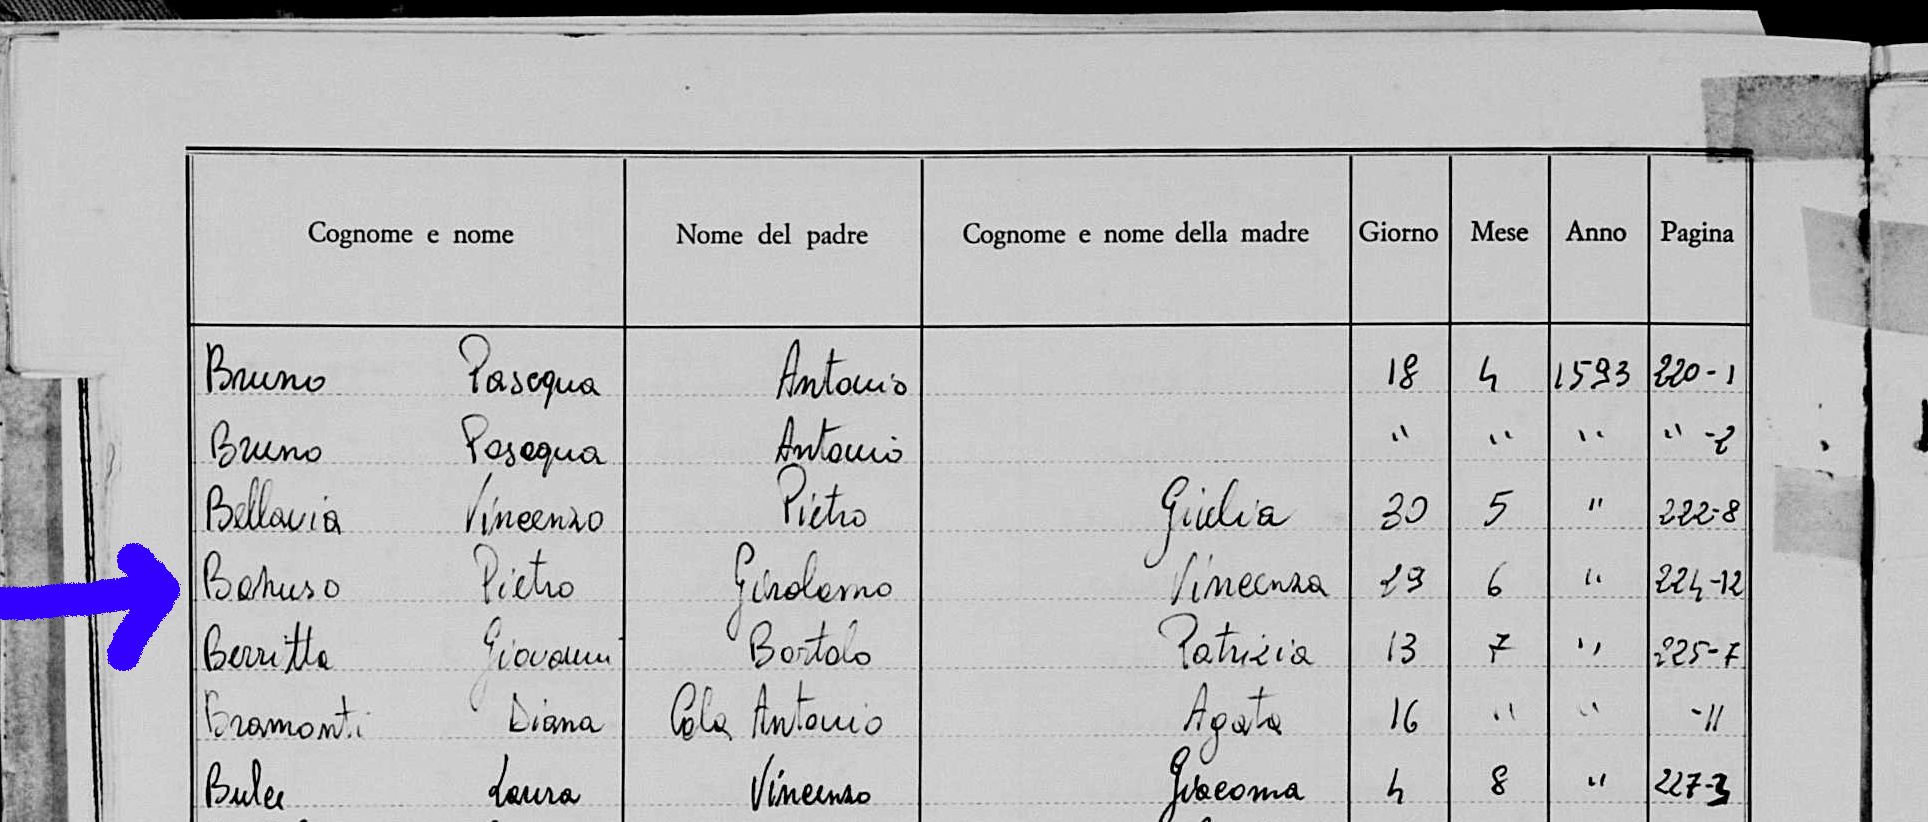 Cognome e nome Nome del padre Cognome e nome della madre Giorno Mese Anno Pagina
Bruno Pasequa Antonio 18 4 1593 220-1
Bruno Pasequa Antonio " " " " -2
Bellavia Vincenzo Pietro Giulia 30 5 " 222-8
Pietro Girolamo Vincenza 29 6 " 224-12
Berritta Giovanni Bartolo Patrizia 13 7 " 225-7
Bramonti Diana Cola Antonio Agata 16 " " -11
Laura Vincenzo Giacoma 4 8 " 227-3